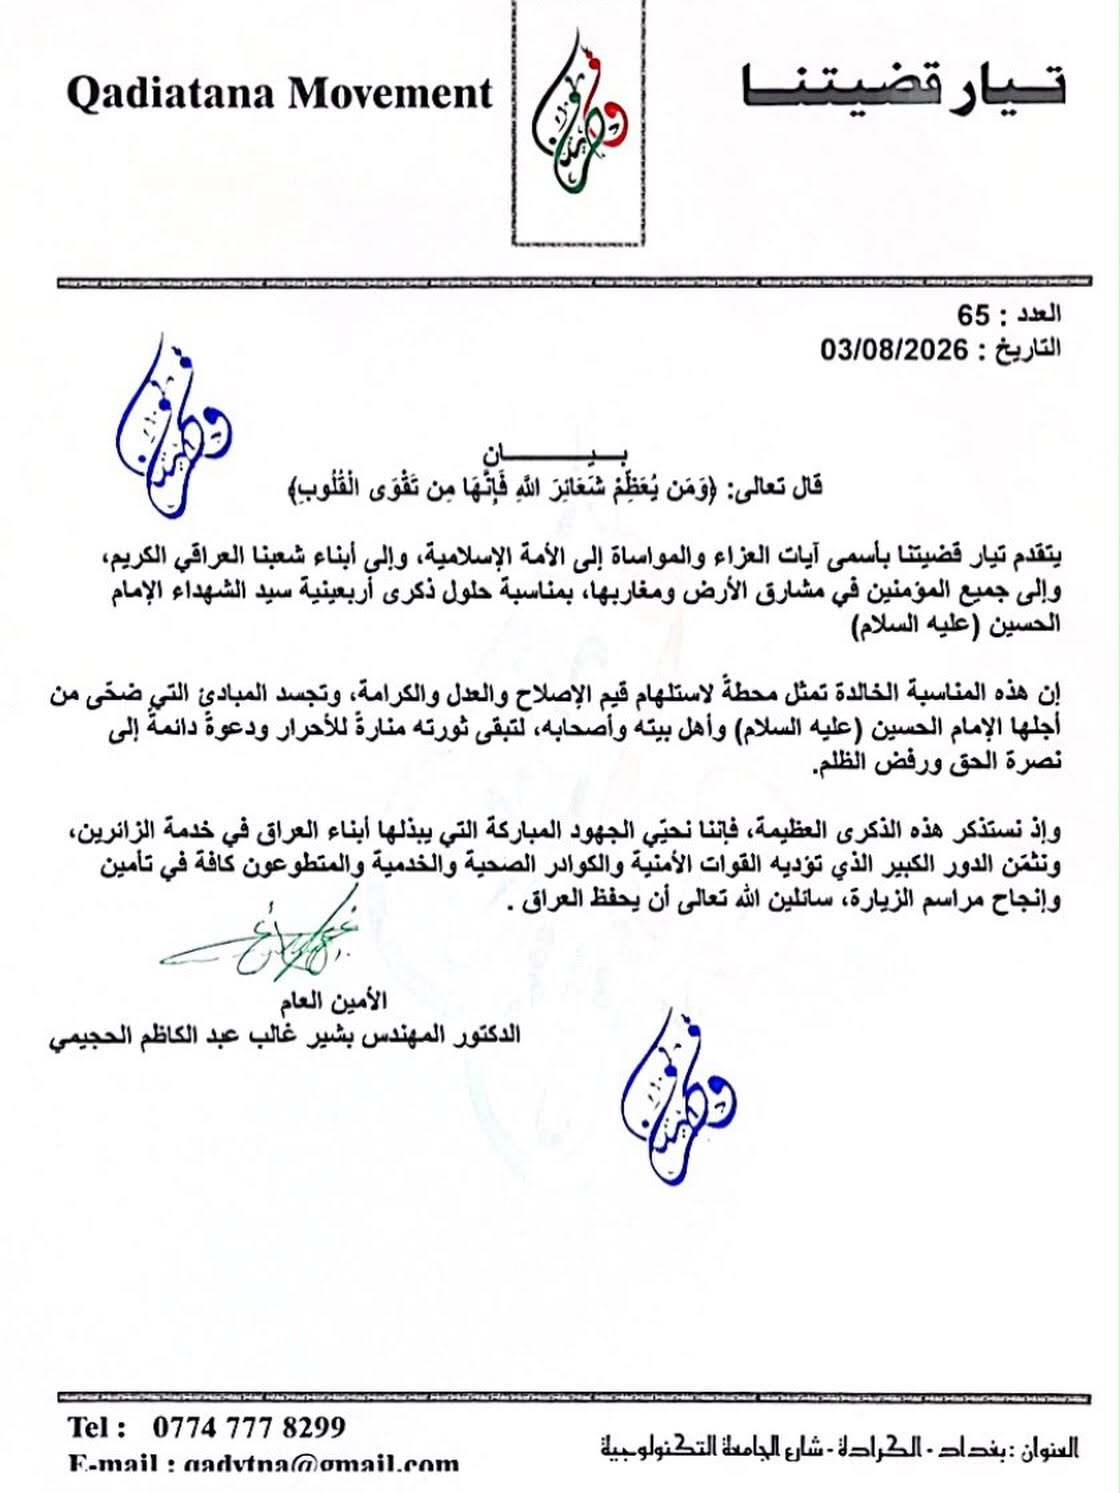 Qadiatana Movement
تيار قضيتنا
العدد : 65
التاريخ : 03/08/2026
بيـــــان
قال تعالى: ﴿وَمَن يُعَظِّمْ شَعَائِرَ اللَّهِ فَإِنَّهَا مِن تَقْوَى الْقُلُوبِ﴾
يتقدم تيار قضيتنا بأسمى آيات العزاء والمواساة إلى الأمة الإسلامية، وإلى أبناء شعبنا العراقي الكريم،
وإلى جميع المؤمنين في مشارق الأرض ومغاربها، بمناسبة حلول ذكرى أربعينية سيد الشهداء الإمام
الحسين (عليه السلام)
إن هذه المناسبة الخالدة تمثل محطةً لاستلهام قيم الإصلاح والعدل والكرامة، وتجسد المبادئ التي ضحّى من
أجلها الإمام الحسين (عليه السلام) وأهل بيته وأصحابه، لتبقى ثورته منارةً للأحرار ودعوةً دائمةً إلى
نصرة الحق ورفض الظلم.
وإذ نستذكر هذه الذكرى العظيمة، فإننا نحيّي الجهود المباركة التي يبذلها أبناء العراق في خدمة الزائرين،
ونثمّن الدور الكبير الذي تؤديه القوات الأمنية والكوادر الصحية والخدمية والمتطوعون كافة في تأمين
وإنجاح مراسم الزيارة، سائلين الله تعالى أن يحفظ العراق .
الأمين العام
الدكتور المهندس بشير غالب عبد الكاظم الحجيمي
Tel : 0774 777 8299
E-mail : qadytna@gmail.com
العنوان : بغداد - الكرادة - شارع الجامعة التكنولوجية